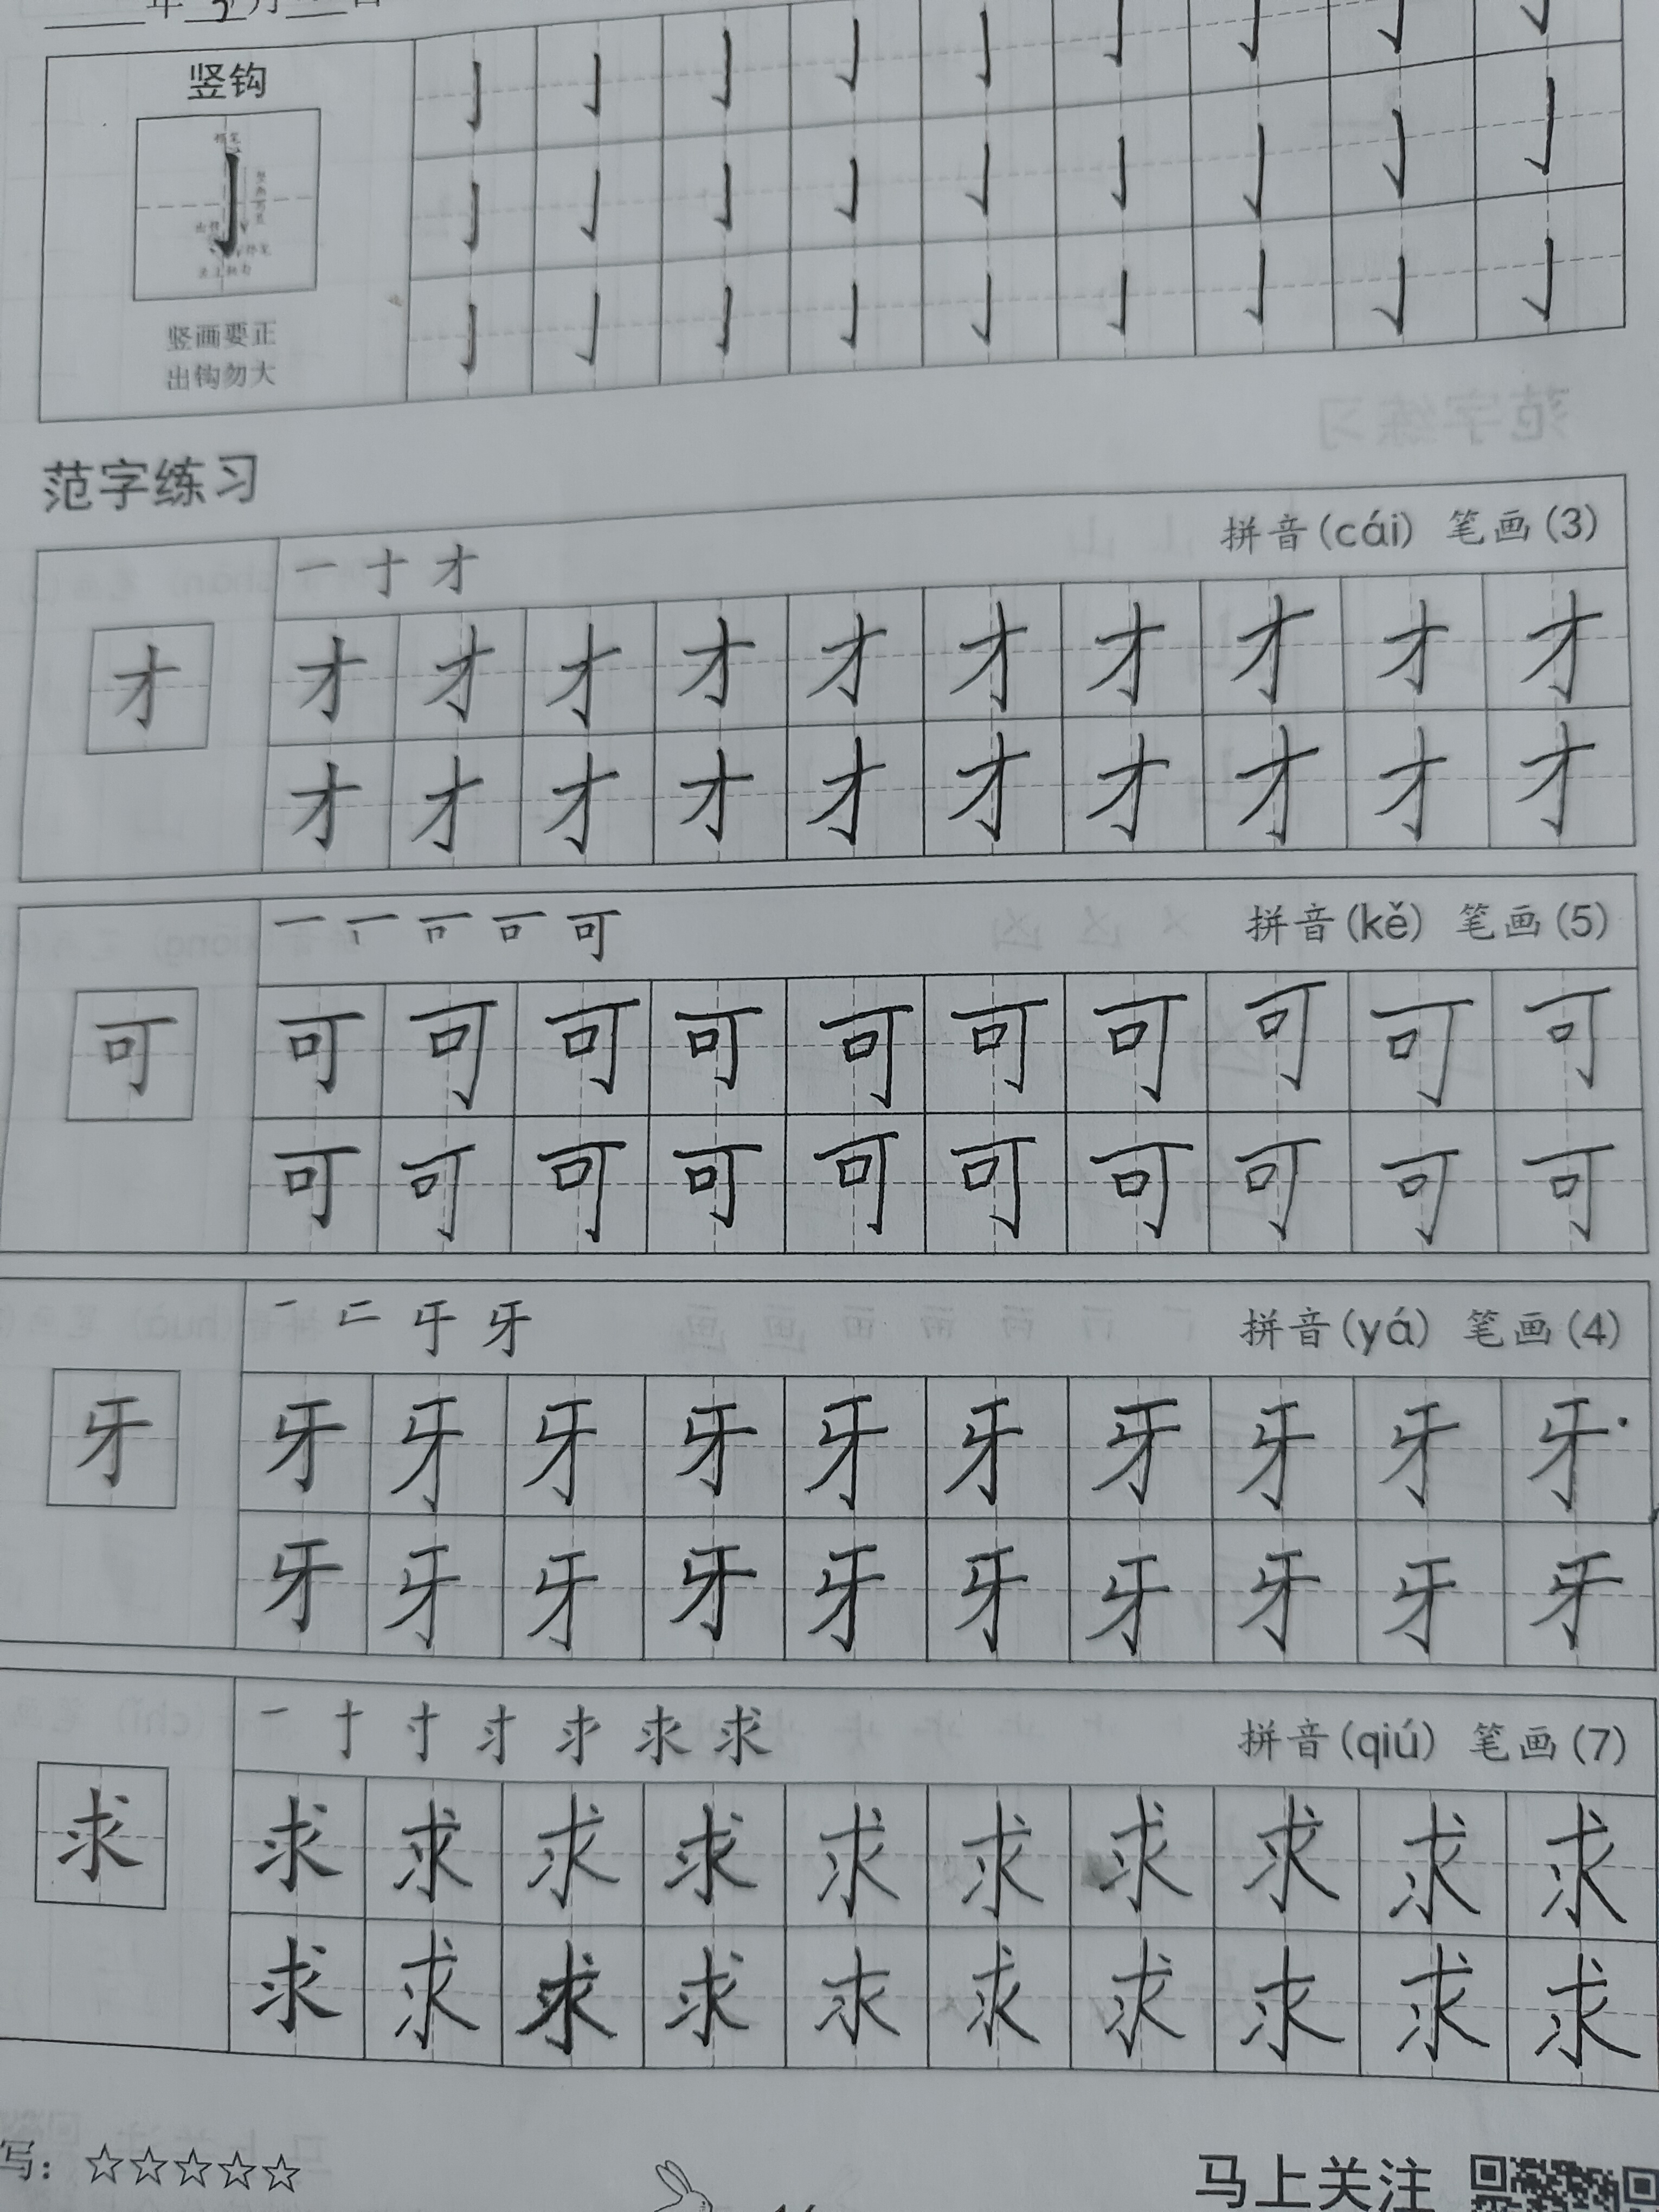 年 3 月 日
竖钩
竖画要正
出钩勿大
范字练习
拼音(cái) 笔画(3)
才
才才才才才才才才才才
才才才才才才才才才才
拼音(kě) 笔画(5)
可
可可可可可可可可可可
可可可可可可可可可可
拼音(yá) 笔画(4)
牙
牙牙牙牙牙牙牙牙牙牙
牙牙牙牙牙牙牙牙牙牙
拼音(qiú) 笔画(7)
求
求求求求求求求求求求
求求求求求求求求求求
写：☆☆☆☆☆
马上关注